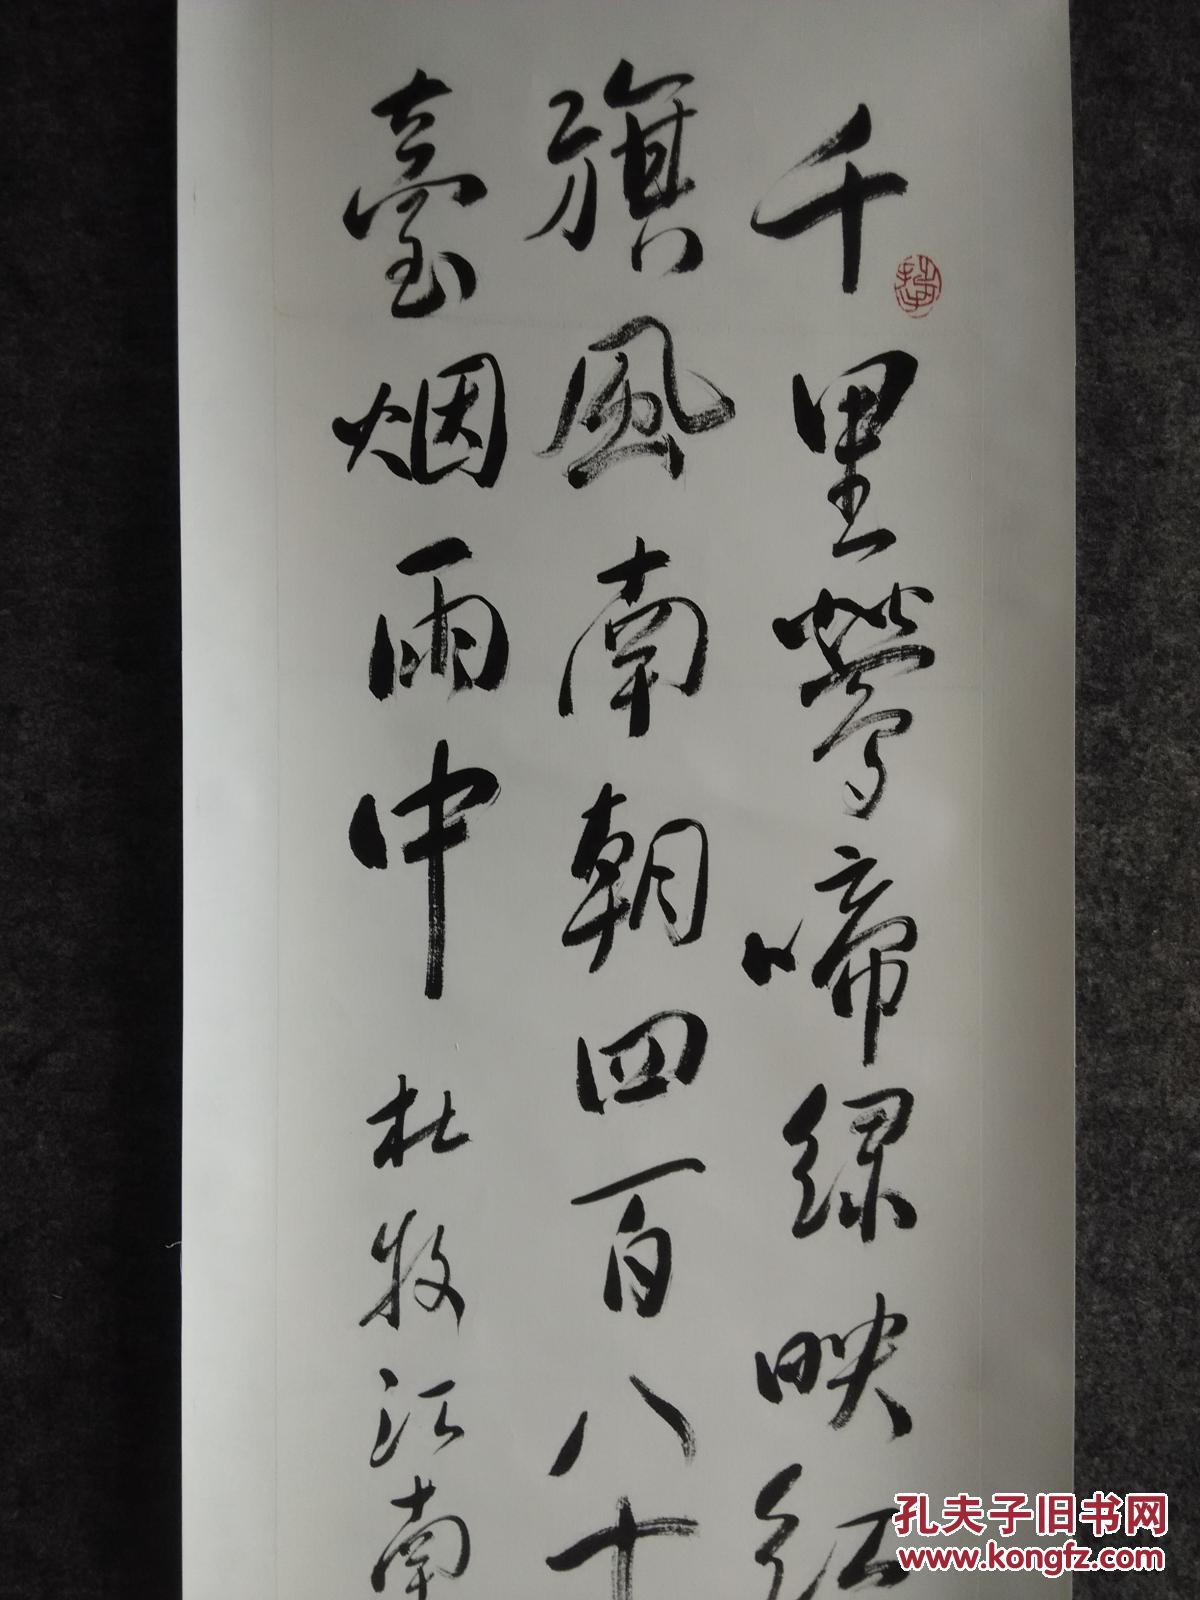 千里莺啼绿映红
旗風南朝四百八十
臺烟雨中 杜牧江南
孔夫子旧书网
www.kongfz.com